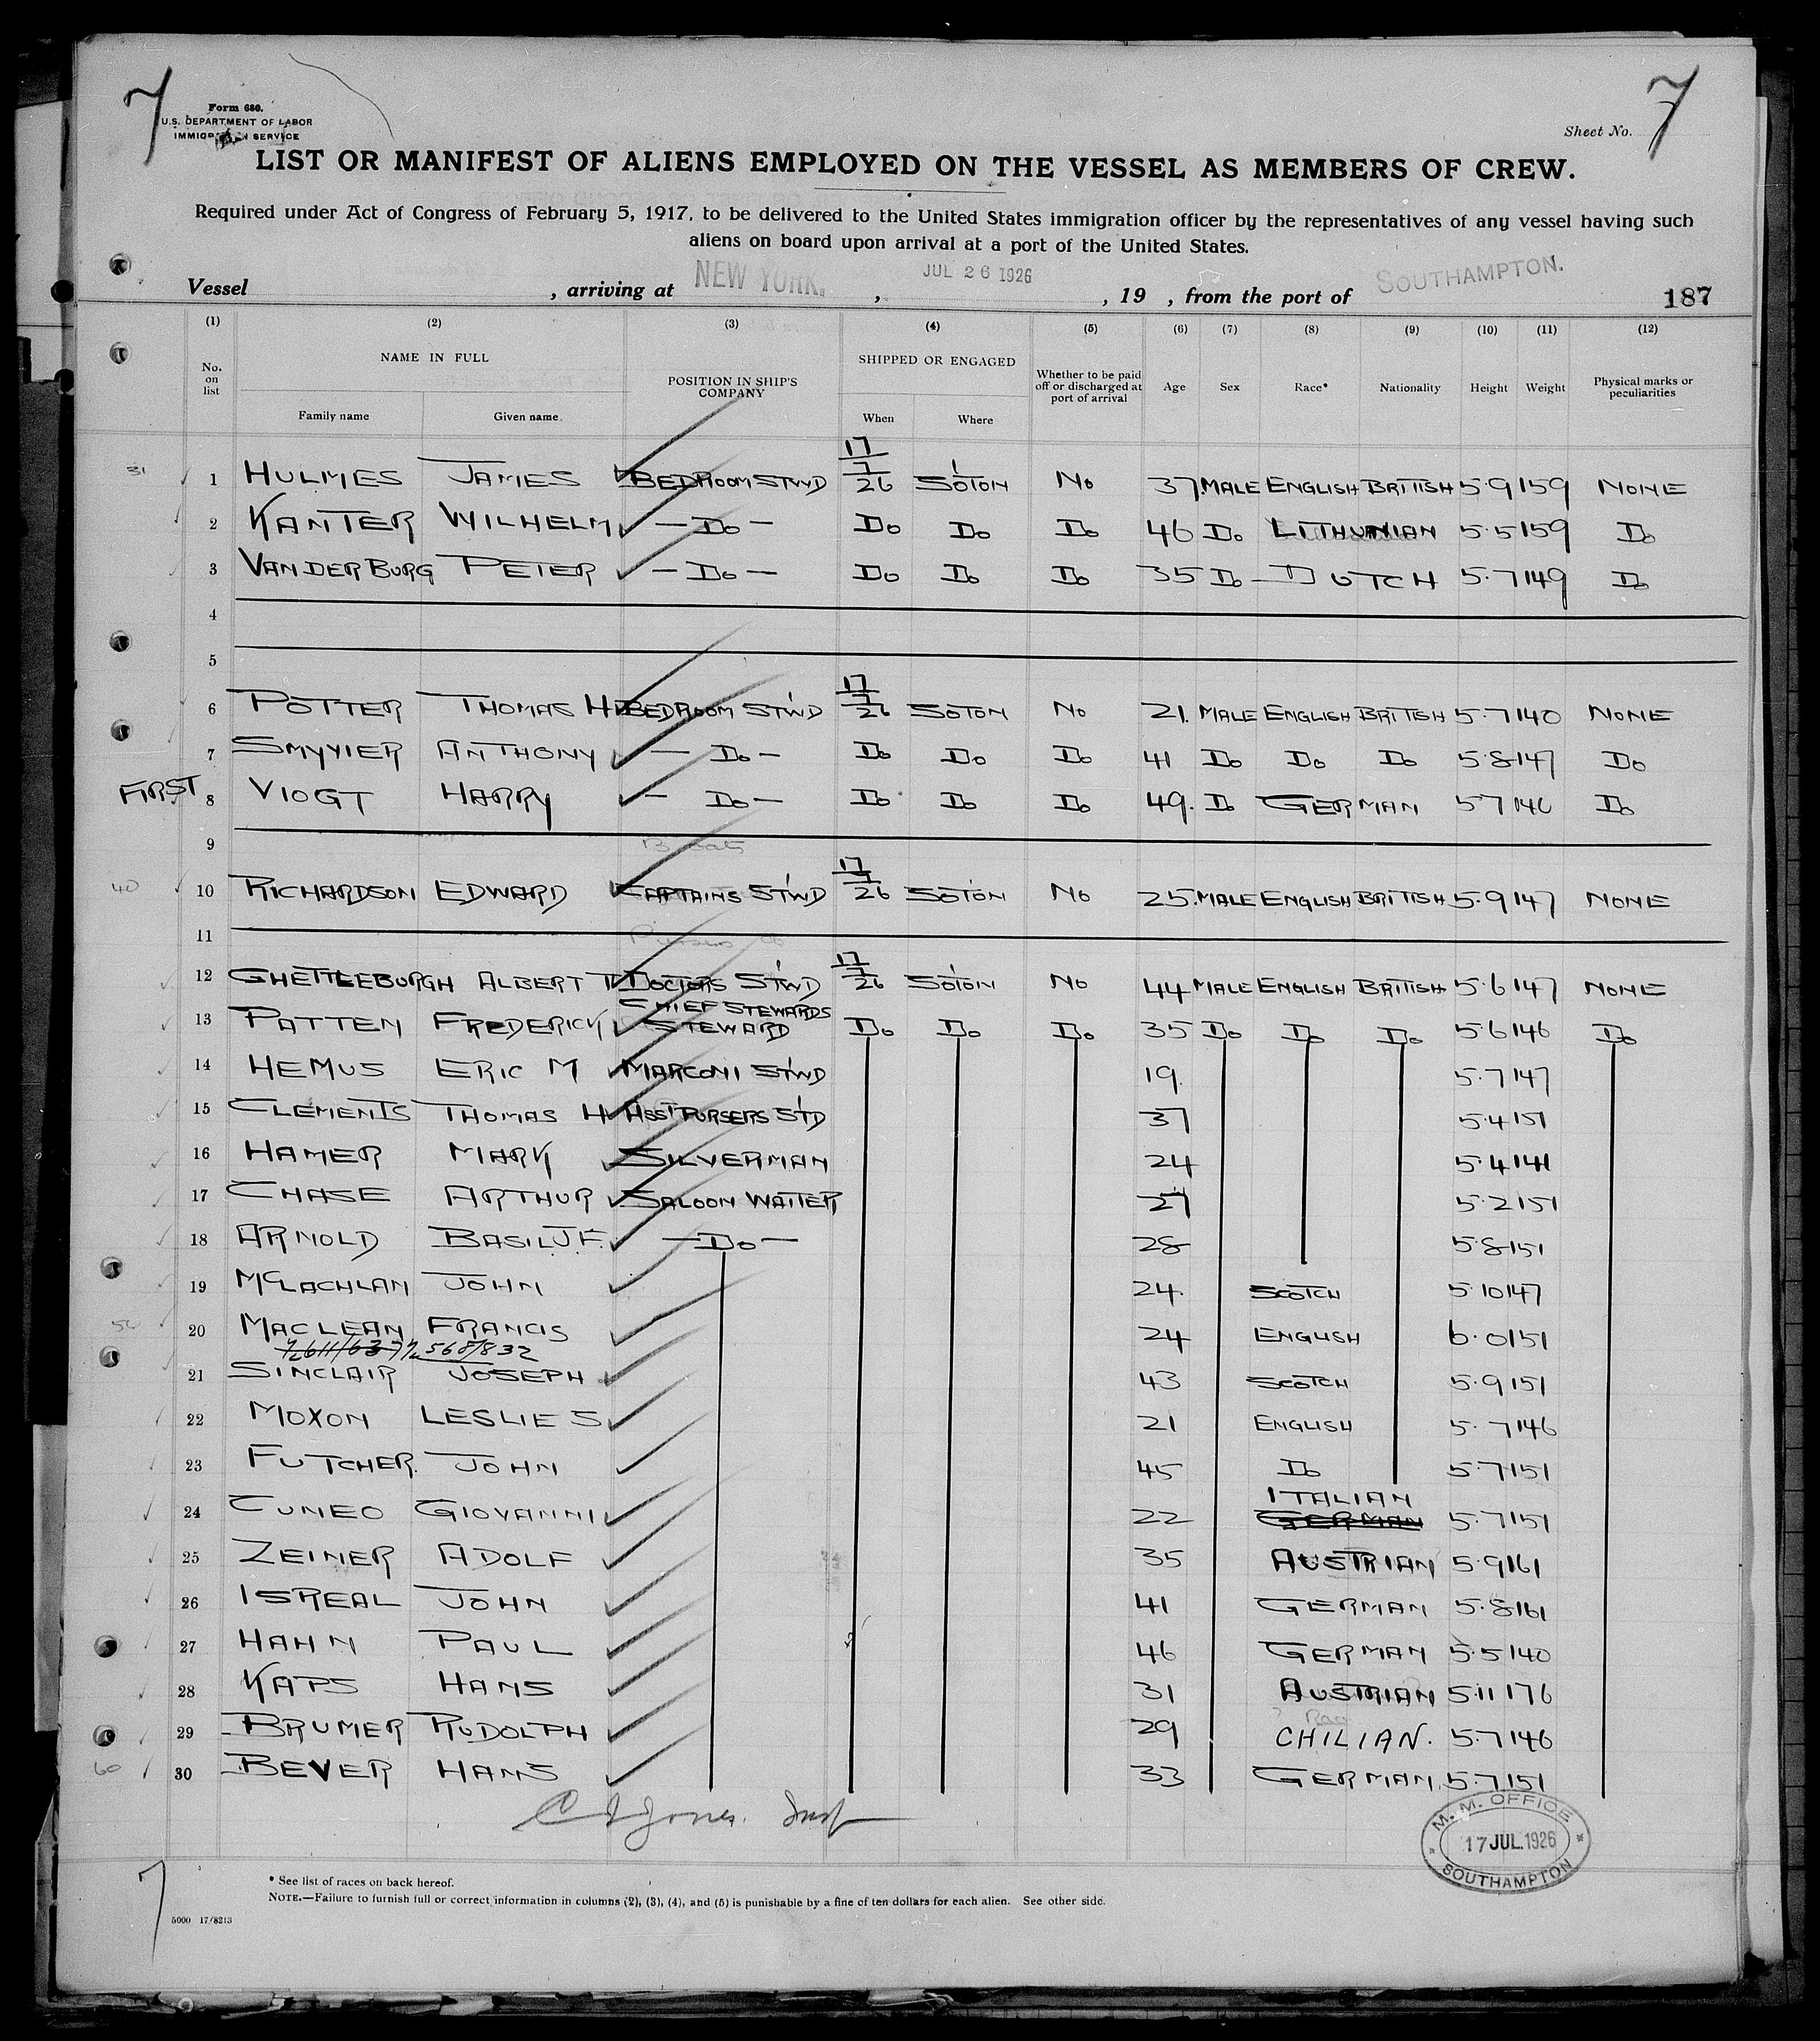 7
7
Form 680.
U.S. DEPARTMENT OF LABOR
IMMIGRATION SERVICE
Sheet No.
LIST OR MANIFEST OF ALIENS EMPLOYED ON THE VESSEL AS MEMBERS OF CREW.
Required under Act of Congress of February 5, 1917, to be delivered to the United States immigration officer by the representatives of any vessel having such
aliens on board upon arrival at a port of the United States.
Vessel , arriving at NEW YORK. , JUL 26 1926 , 19 , from the port of SOUTHAMPTON.
187
(1) (2) (3) (4) (5) (6) (7) (8) (9) (10) (11) (12)
No. on list NAME IN FULL POSITION IN SHIP'S COMPANY SHIPPED OR ENGAGED Whether to be paid off or discharged at port of arrival Age Sex Race* Nationality Height Weight Physical marks or peculiarities
Family name Given name When Where
31 1 HULMES JAMES BEDROOM STWD 17/7/26 SO'TON No 37 MALE ENGLISH BRITISH 5.9 159 NONE
2 KANTER WILHELM - Do - Do Do Do 46 Do LITHUNIAN 5.5 159 Do
3 VANDERBURG PETER - Do - Do Do Do 35 Do DUTCH 5.7 149 Do
4
5
6 POTTER THOMAS H BEDROOM ST'WD 17/7/26 SO'TON No 21. MALE ENGLISH BRITISH 5.7 140 NONE
7 SMYVIER ANTHONY - Do - Do Do Do 41 Do Do Do 5.8 147 Do
FIRST 8 VIOGT HARRY - Do - Do Do Do 49. Do GERMAN 5 7 146 Do
9
40 10 RICHARDSON EDWARD CAPTAINS ST'WD 17/7/26 SO'TON No 25. MALE ENGLISH BRITISH 5.9 147 NONE
11
12 GHETTLEBURGH ALBERT T DOCTORS ST'WD 17/7/26 SO'TON No 44 MALE ENGLISH BRITISH 5.6 147 NONE
13 PATTEN FREDERICK CHIEF STEWARDS STEWARD Do Do Do 35 Do Do Do 5.6 146 Do
14 HEMUS ERIC M MARCONI ST'WD 19. 5.7 147
15 CLEMENTS THOMAS H ASST PURSERS ST'D 37 5.4 151
16 HAMER MARK SILVERMAN 24 5.4 141
17 CHASE ARTHUR SALOON WAITER 27 5.2 151
18 ARNOLD BASIL J.F. - Do - 28 5.8 151
19 McLACHLAN JOHN 24. SCOTCH 5.10 147
20 MACLEAN FRANCIS 24 ENGLISH 6.0 151
568/832
21 SINCLAIR JOSEPH 43 SCOTCH 5.9 151
22 MOXON LESLIE S 21 ENGLISH 5.7 146
23 FUTCHER. JOHN 45 Do 5.7 151
24 CUNEO GIOVANNI 22 ITALIAN GERMAN 5.7 151
25 ZEINER ADOLF 35 AUSTRIAN 5.9 161
26 ISREAL JOHN 41 GERMAN 5.8 161
27 HAHN PAUL 46 GERMAN 5.5 140
28 KAPS HANS 31 AUSTRIAN 5.11 176
29 BRUMER RUDOLPH 29 CHILIAN. 5.7 146
60 30 BEVER HANS 33 GERMAN. 5.7 151
M. M. OFFICE
17 JUL. 1926
SOUTHAMPTON
7
* See list of races on back hereof.
NOTE.—Failure to furnish full or correct information in columns (2), (3), (4), and (5) is punishable by a fine of ten dollars for each alien. See other side.
5000 17/8213